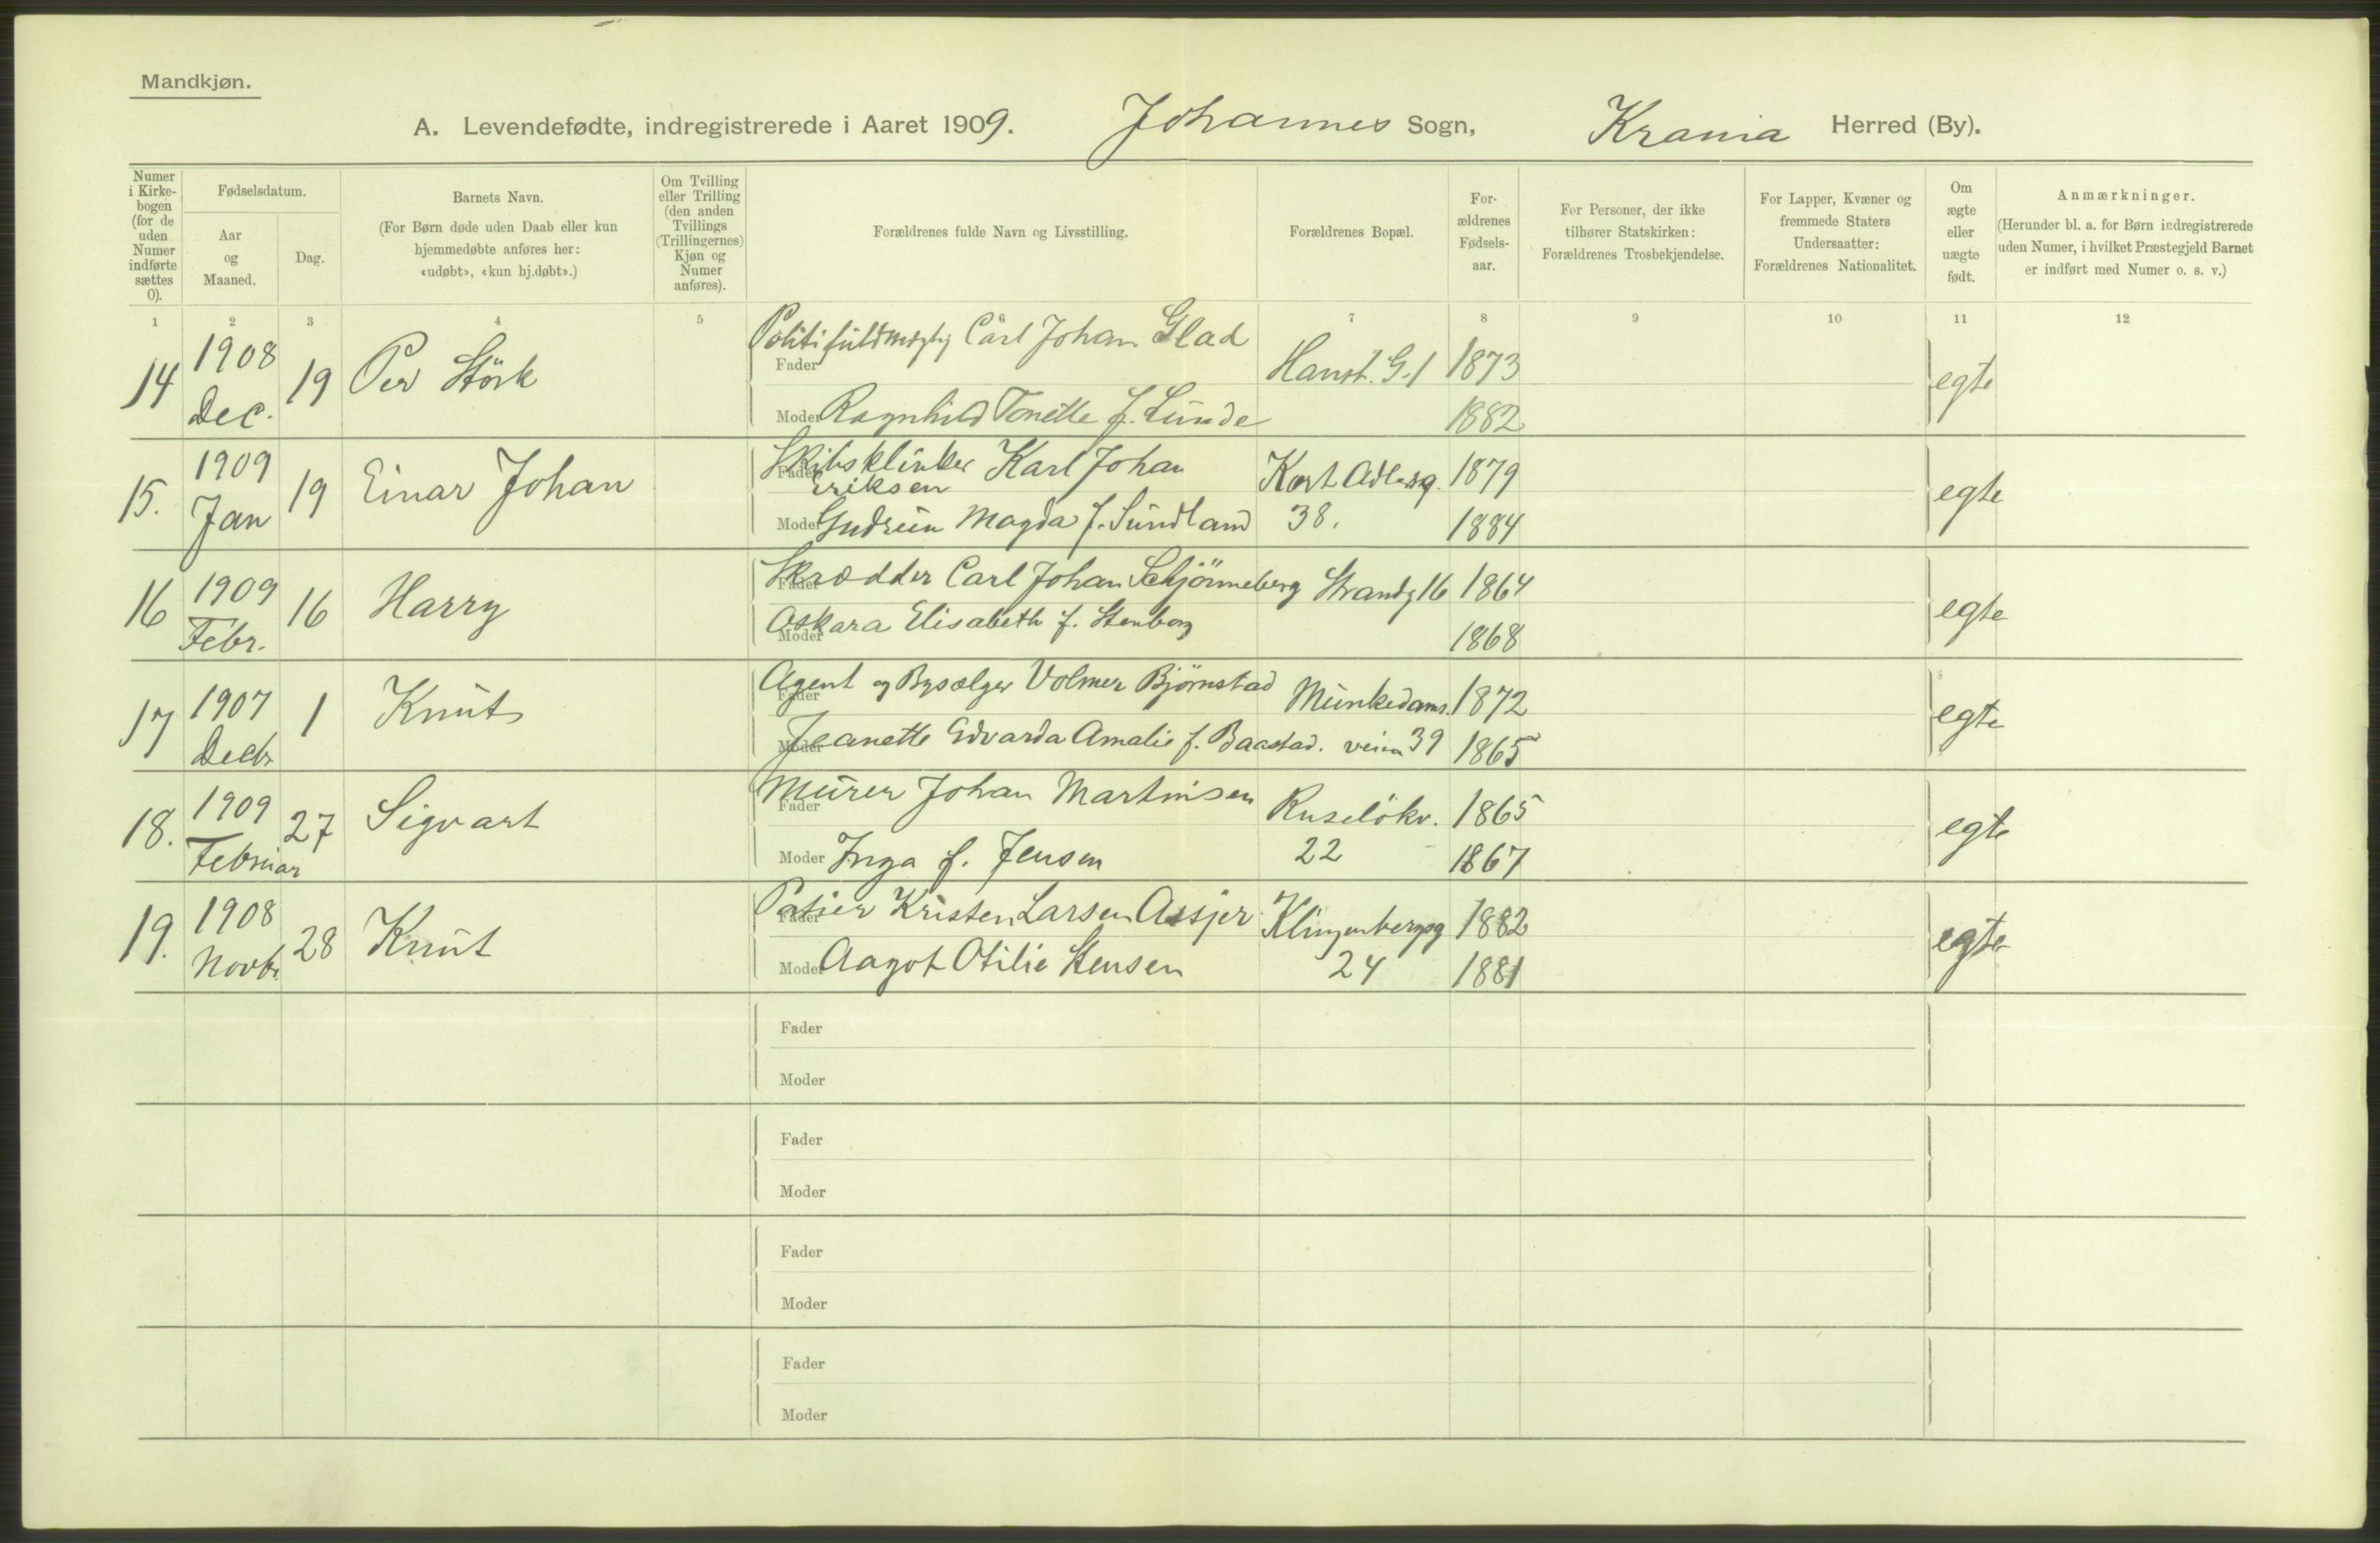 Mandkjøn.
A. Levendefødte, indregistrerede i Aaret 1909. Johannes Sogn, Krania Herred (By).
Numer i Kirke- bogen (for de uden Numer indførte sættes 0).
Fødselsdatum.
Aar og Maaned.
Dag.
Barnets Navn.
(For Børn døde uden Daab eller kun hjemmedøbte anføres her: «udøbt», «kun hj.døbt».)
Om Tvilling eller Trilling (den anden Tvillings (Trillingernes) Kjøn og Numer anføres).
Forældrenes fulde Navn og Livsstilling.
Forældrenes Bopæl.
For- ældrenes Fødsels- aar.
For Personer, der ikke tilhører Statskirken: Forældrenes Trosbekjendelse.
For Lapper, Kvæner og fremmede Staters Undersaatter: Forældrenes Nationalitet.
Om ægte eller uægte født.
Anmærkninger.
(Herunder bl. a. for Børn indregistrerede uden Numer, i hvilket Præstegjeld Barnet er indført med Numer o. s. v.)
1 2 3 4 5 6 7 8 9 10 11 12
14 1908 Dec. 19 Per Störk
Fader Politifuldmægtig Carl Johan Glad Hanst. G. 1 1873 egte
Moder Ragnhild Tonette f. Lunde 1882
15. 1909 Jan 19 Einar Johan
Fader Skibsklinker Karl Johan Eriksen Kort Adlersg. 1879 egte
Moder Gudrun Magda f. Sundland 38. 1884
16 1909 Febr. 16 Harry
Fader Skrædder Carl Johan Schjönneberg Strandg 16 1864 egte
Moder Askara Elisabeth f. Stenborg 1868
17 1907 Decbr 1 Knut
Fader Agent og Bysælger Volmer Bjørnstad Munkedams- 1872 egte
Moder Jeanette Edvarda Amalie f. Baastad. veien 39 1865
18. 1909 Februar 27 Sigvart
Fader Murer Johan Martinsen Ruselökv. 1865 egte
Moder Inga f. Jensen 22 1867
19. 1908 Novbr. 28 Knut
Fader Kristen Larsen Assjer Klingenbergsg 1882 egte
Moder Aagot Otilie Stensen 24 1881
Fader
Moder
Fader
Moder
Fader
Moder
Fader
Moder